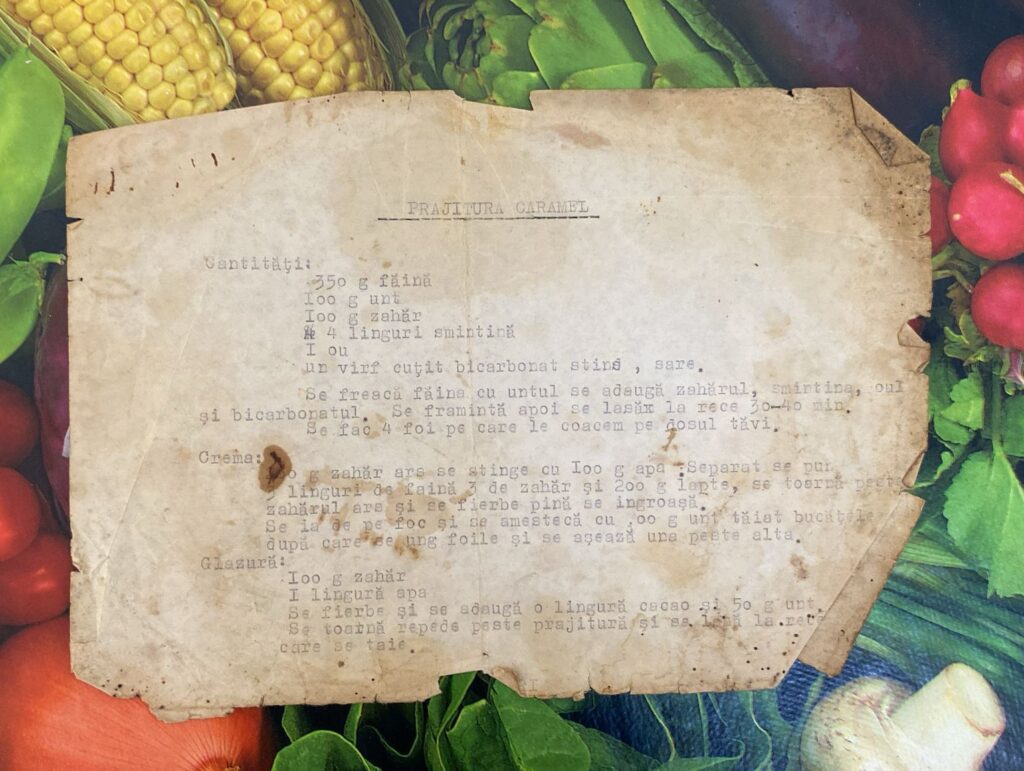 PRAJITURA CARAMEL
Cantităţi:
350 g făină
I00 g unt
I00 g zahăr
4 linguri smintină
I ou
un virf cuţit bicarbonat stins , sare.
Se freacă făina cu untul se adaugă zahărul, smintina, oul
şi bicarbonatul. Se framintă apoi se lasăx la rece 30-40 min.
Se fac 4 foi pe care le coacem pe dosul tăvi.
Crema:
g zahăr ars se stinge cu I00 g apa .Separat se pun
linguri de faină 3 de zahăr şi 200 g lapte, se toarnă peste
zahărul ars şi se fierbe pină se ingroaşă.
Se ia de pe foc şi se amestecă cu g unt tăiat bucăţele
după care se ung foile şi se aşează una peste alta.
Glazură:
I00 g zahăr
I lingură apa
Se fierbe şi se adaugă o lingură cacao şi 50 g unt.
Se toarnă repede peste prajitură şi se lasă la rece
care se taie.